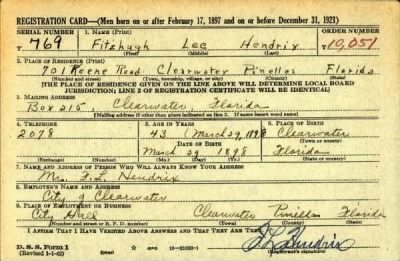 REGISTRATION CARD—(Men born on or after February 17, 1897 and on or before December 31, 1921)
SERIAL NUMBER 1. NAME (Print) ORDER NUMBER
T 769 Fitzhugh Lee Hendrix 10,051
(First) (Middle) (Last)
2. PLACE OF RESIDENCE (Print)
701 Keene Road Clearwater Pinellas Florida
(Number and street) (Town, township, village, or city) (County) (State)
[THE PLACE OF RESIDENCE GIVEN ON THE LINE ABOVE WILL DETERMINE LOCAL BOARD
JURISDICTION; LINE 2 OF REGISTRATION CERTIFICATE WILL BE IDENTICAL]
3. MAILING ADDRESS
Box 215, Clearwater, Florida
(Mailing address if other than place indicated on line 2. If same insert word same)
4. TELEPHONE 5. AGE IN YEARS 6. PLACE OF BIRTH
2078 43 (March 29, 1898 Clearwater
DATE OF BIRTH (Town or county)
March 29, 1898 Florida
(Exchange) (Number) (Mo.) (Day) (Yr.) (State or country)
7. NAME AND ADDRESS OF PERSON WHO WILL ALWAYS KNOW YOUR ADDRESS
Mrs. F. L. Hendrix
8. EMPLOYER'S NAME AND ADDRESS
City of Clearwater
9. PLACE OF EMPLOYMENT OR BUSINESS
City Hall Clearwater Pinellas Florida
(Number and street or R. F. D. number) (Town) (County) (State)
I AFFIRM THAT I HAVE VERIFIED ABOVE ANSWERS AND THAT THEY ARE TRUE.
D. S. S. Form 1
(Revised 1-1-42) (over) F L Hendrix
(Registrant's signature)